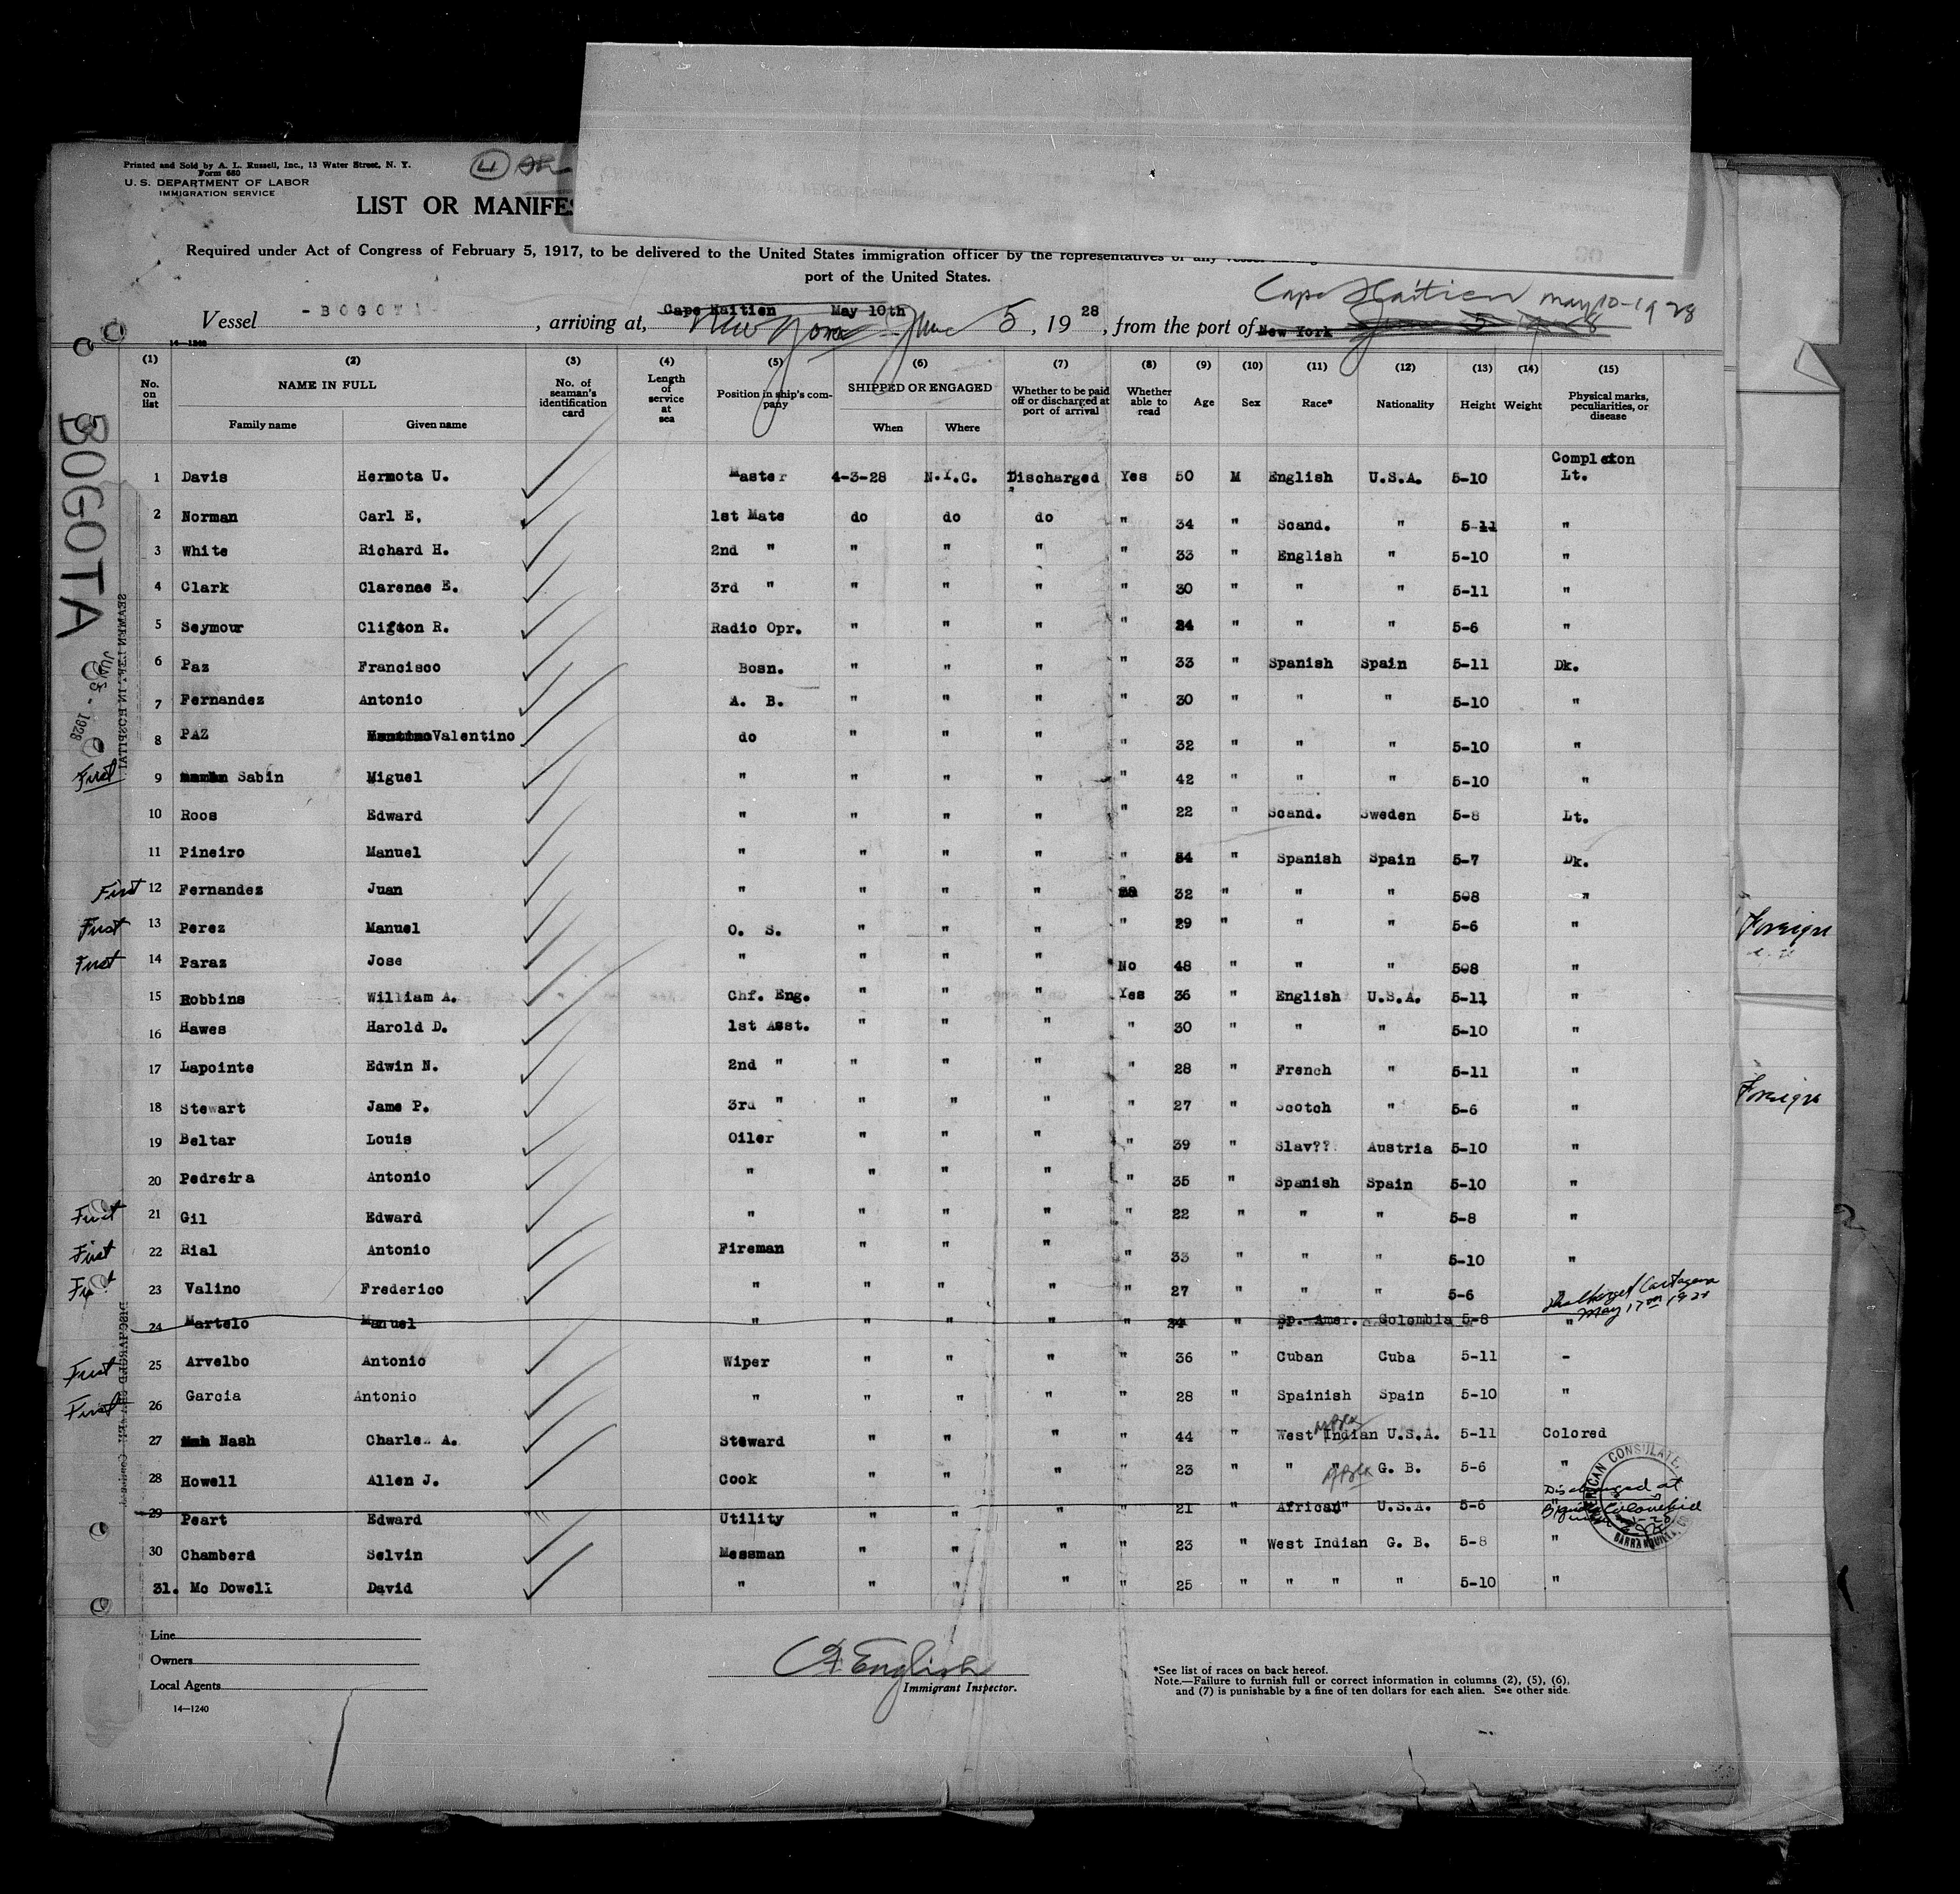 Printed and Sold by A. L. Russell, Inc., 13 Water Street, N. Y.
Form 680
U. S. DEPARTMENT OF LABOR
IMMIGRATION SERVICE
4
LIST OR MANIFES
Required under Act of Congress of February 5, 1917, to be delivered to the United States immigration officer by the representatives of any
port of the United States.
Cape Haitien May 10-1928
Cape Haitien May 10th
Vessel - BOGOTA - , arriving at, New York June 5 , 19 28 , from the port of New York June 5 1928
14-1240
(1) (2) (3) (4) (5) (6) (7) (8) (9) (10) (11) (12) (13) (14) (15)
No. on list NAME IN FULL Family name Given name No. of seaman's identification card Length of service at sea Position in ship's company SHIPPED OR ENGAGED When Where Whether to be paid off or discharged at port of arrival Whether able to read Age Sex Race* Nationality Height Weight Physical marks, peculiarities, or disease
Complexion
1 Davis Hermota U. Master 4-3-28 N.Y.C. Discharged Yes 50 M English U.S.A. 5-10 Lt.
2 Norman Carl E. 1st Mate do do do " 34 " Scand. " 5-11 "
3 White Richard H. 2nd " " " " " 33 " English " 5-10 "
4 Clark Clarence E. 3rd " " " " " 30 " " " 5-11 "
5 Seymour Clifton R. Radio Opr. " " " " 24 " " " 5-6 "
6 Paz Francisco Bosn. " " " " 33 " Spanish Spain 5-11 Dk.
7 Fernandez Antonio A. B. " " " " 30 " " " 5-10 "
8 PAZ Valentino do " " " " 32 " " " 5-10 "
First 9 Sabin Miguel " " " " " 42 " " " 5-10 "
10 Roos Edward " " " " " 22 " Scand. Sweden 5-8 Lt.
11 Pineiro Manuel " " " " " 34 " Spanish Spain 5-7 Dk.
First 12 Fernandez Juan " " " " " 32 " " " 508 "
First 13 Perez Manuel O. S. " " " " 29 " " " 5-6 "
First 14 Paraz Jose " " " " No 48 " " " 508 "
15 Robbins William A. Chf. Eng. " " " Yes 36 " English U.S.A. 5-11 "
16 Hawes Harold D. 1st Asst. " " " " 30 " " " 5-10 "
17 Lapointe Edwin N. 2nd " " " " " 28 " French " 5-11 "
18 Stewart Jame P. 3rd " " " " " 27 " Scotch " 5-6 "
19 Beltar Louis Oiler " " " " 39 " Slav?? Austria 5-10 "
20 Pedreira Antonio " " " " " 35 " Spanish Spain 5-10 "
First 21 Gil Edward " " " " " 22 " " " 5-8 "
First 22 Rial Antonio Fireman " " " " 33 " " " 5-10 "
First 23 Valino Frederico " " " " " 27 " " " 5-6
Discharged Cartagena
May 17th 1928
24 Martelo Manuel " " " " " 24 " Sp.-Amer. Colombia 5-8 "
First 25 Arvelbo Antonio Wiper " " " " 36 " Cuban Cuba 5-11 -
First 26 Garcia Antonio " " " " " 28 " Spainish Spain 5-10 "
27 Nash Charles A. Steward " " " " 44 " West Indian U.S.A. 5-11 Colored
28 Howell Allen J. Cook " " " " 23 " " " G. B. 5-6 "
29 Peart Edward Utility " " " " 21 " African" U.S.A. 5-6 "
Discharged at
30 Chamberd Selvin Messman " " " " 23 " West Indian G. B. 5-8 "
31. Mc Dowell David " " " " " 25 " " " " 5-10 "
AMERICAN CONSULATE,
BARRANQUILLA,
BOGOTA
JUN 5 - 1928
SEAMEN LEFT IN HOSPITAL
Foreign
Foreign
Line
Owners
Local Agents
14-1240
English
Immigrant Inspector.
*See list of races on back hereof.
Note.—Failure to furnish full or correct information in columns (2), (5), (6),
and (7) is punishable by a fine of ten dollars for each alien. See other side.